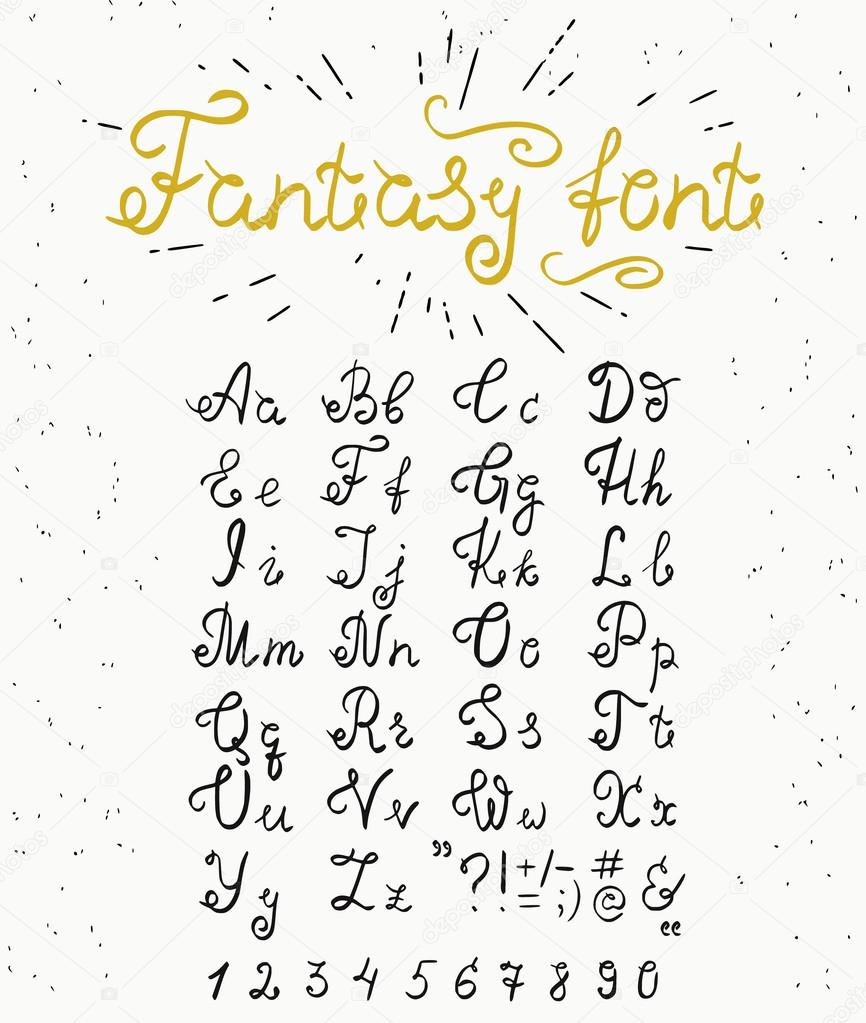 Fantasy font
Aa Bb Cc Dd
Ee Ff Gg Hh
Ii Jj Kk Ll
Mm Nn Oo Pp
Qq Rr Ss Tt
Uu Vv Ww Xx
Yy Zz ” ? ! + / - = ; ) # @ & “
1 2 3 4 5 6 7 8 9 0